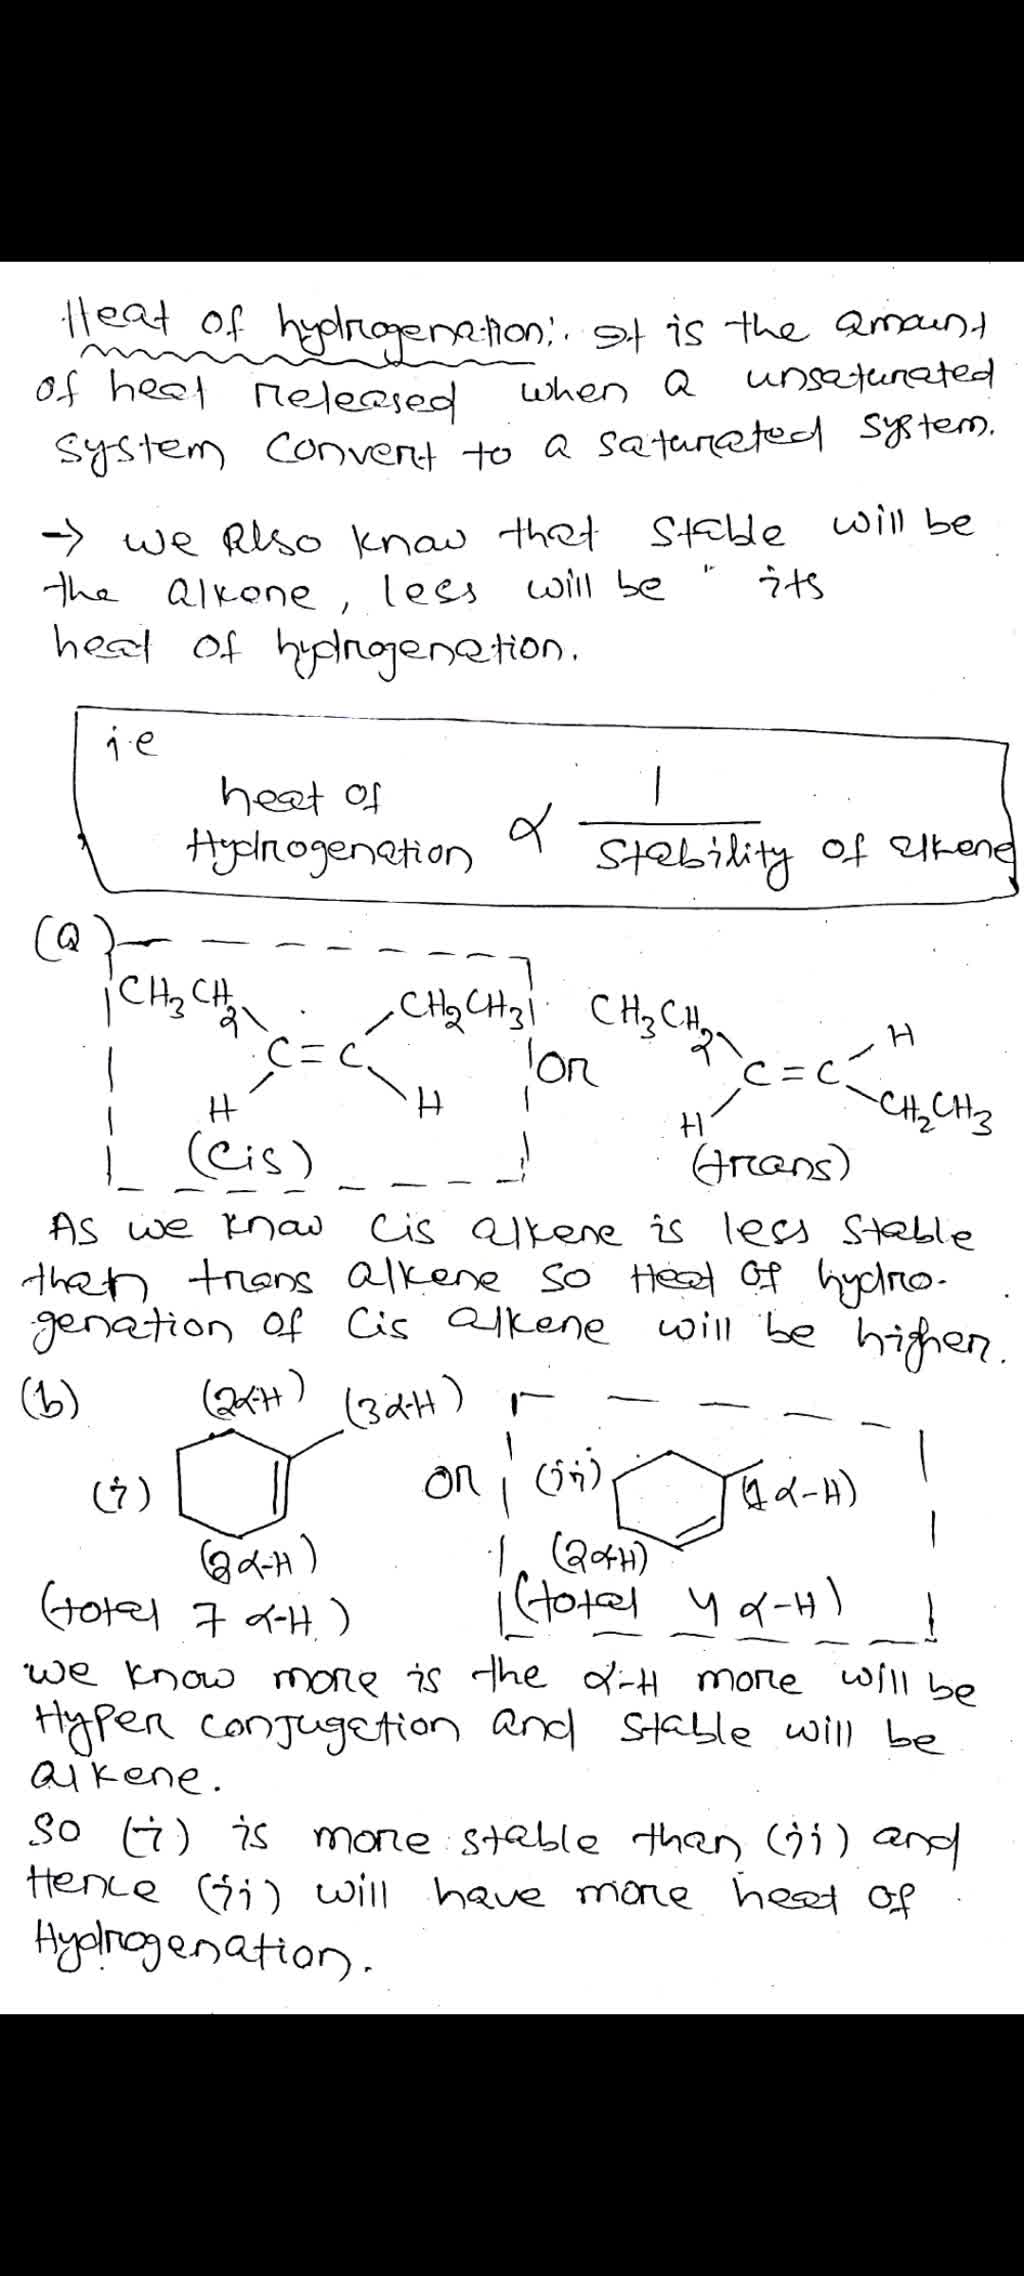 Heat of hydrogenation:. It is the amount
of heat released when a unsaturated
system convert to a saturated system.
→ we also know that stable will be
the alkene, less will be " its
heat of hydrogenation.
i.e
heat of Hydrogenation ∝ 1 / stability of alkene
(a)
CH3CH2 CH2CH3 or CH3CH2 H
C=C C=C
H H H CH2CH3
(cis) (trans)
As we know cis alkene is less stable
then trans alkene so Heat of hydro-
genation of cis alkene will be higher.
(b) (2α-H) (3α-H)
(i) or (ii) (1α-H)
(2α-H) (2α-H)
(total 7 α-H) (total 4 α-H)
we know more is the α-H more will be
Hyper conjugation and stable will be
alkene.
So (i) is more stable than (ii) and
Hence (ii) will have more heat of
Hydrogenation.